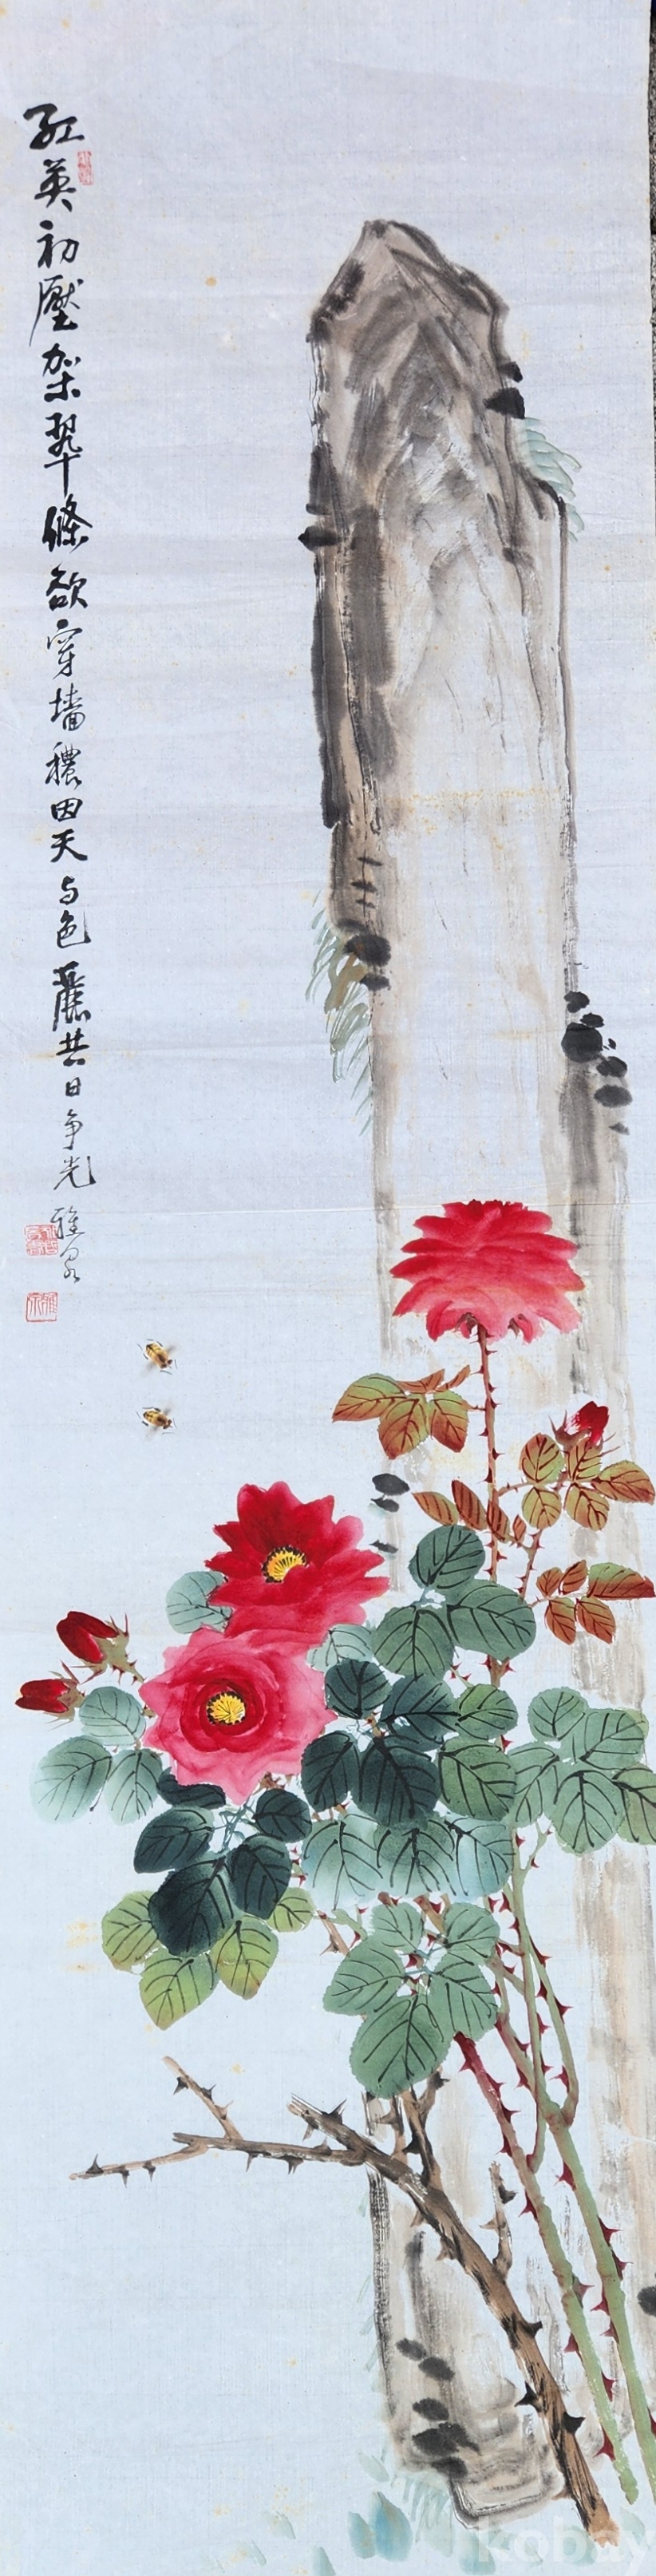 紅英初壓架翠條欲穿墻穠因天与色麗共日争光 雅泉
kobay